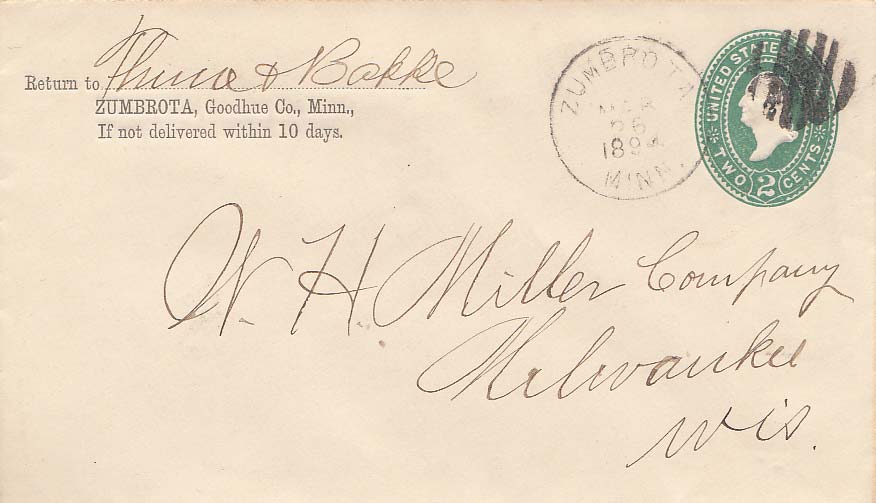 Return to & Bakke
ZUMBROTA, Goodhue Co., Minn.,
If not delivered within 10 days.
ZUMBROTA
MAR
26
1894
MINN.
UNITED STATES
TWO 2 CENTS
W. H. Miller Company
Milwaukee
Wis.